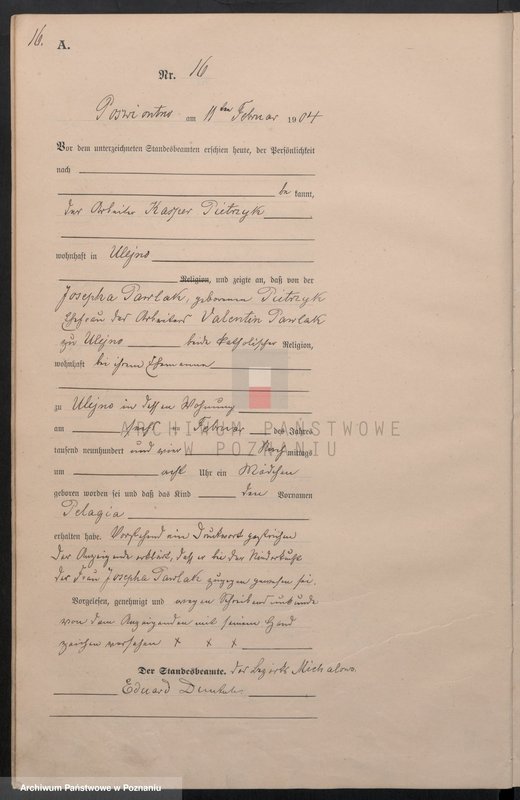 16.
A.
Nr. 16
am 11ten Februar 1904
Vor dem unterzeichneten Standesbeamten erschien heute, der Persönlichkeit
nach
be kannt,
der Arbeiter Kasper Pietrzyk
wohnhaft in Ulejno
Religion, und zeigte an, daß von der
Josepha Pawlak, geborenen Pietrzyk
Ehefrau des Arbeiters Valentin Pawlak
zu Ulejno beide katholischer Religion,
wohnhaft bei ihrem Ehemanne
zu Ulejno in dessen Wohnung
am Februar des Jahres
tausend neunhundert und vier Nach mittags
um acht Uhr ein Mädchen
geboren worden sei und daß das Kind den Vornamen
Pelagia
erhalten habe. Vorstehend ein Druckwort gestrichen
Der Anzeigende erklärt, daß er bei der Niederkunft
der Frau Josepha Pawlak zugegen gewesen sei.
Vorgelesen, genehmigt und wegen Schreibensunkunde
von dem Anzeigenden mit seinem Hand
zeichen versehen x x x
Der Standesbeamte. des Bezirks
Eduard
ARCHIWUM PAŃSTWOWE
W POZNANIU
Archiwum Państwowe w Poznaniu